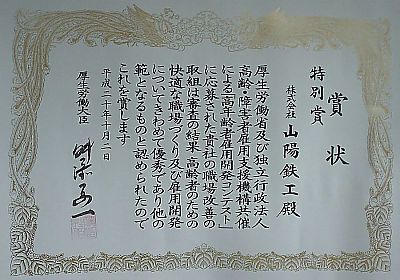 賞状
特別賞
株式会社 山陽鉄工殿
厚生労働省及び独立行政法人
高齢・障害者雇用支援機構共催
による「高年齢者雇用開発コンテスト」
に応募された貴社の職場改善の
取組は審査の結果、高齢者のための
快適な職場づくり及び雇用開発
についてきわめて優秀であり他の
範となるものと認められたので
これを賞します
平成二十年十月二日
厚生労働大臣